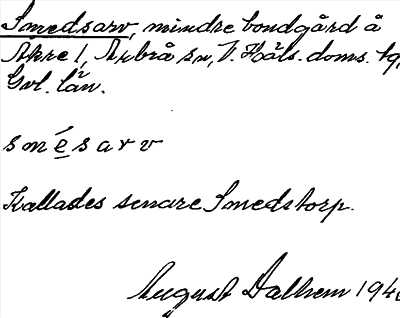 Smedsarv, mindre bondgård å
Åkre 1, Arbrå sn, V. Häls. doms. tg,
Gvl. län.
s m é s a r v
Kallades senare Smedstorp.
August Dalhem 194